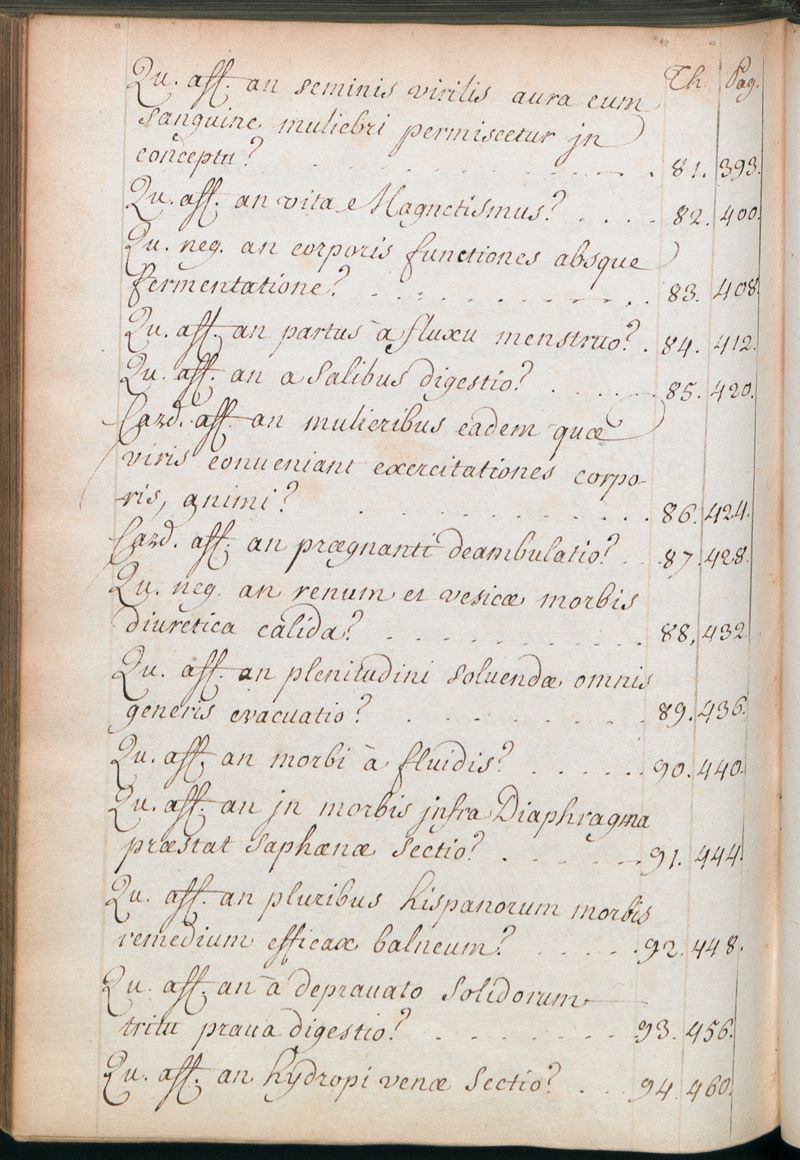 Th. Pag.
Qu. aff. an seminis virilis aura cum
sanguine muliebri permiscetur jn
conceptu? . . . . . . . . . . . . 81. 393.
Qu. aff. an vita Magnetismus? . . . . 82. 400.
Qu. neg. an corporis functiones absque
fermentatione? . . . . . . . . . . . 83. 408.
Qu. aff. an partus à fluxu menstruo? . 84. 412.
Qu. aff. an a Salibus digestio? . . . . . 85. 420.
Card. aff. an mulieribus eadem quæ
viris conueniant exercitationes corpo-
ris, animi? . . . . . . . . . . 86. 424.
Card. aff. an prægnanti deambulatio? . . 87. 428.
Qu. neg. an renum et vesicæ morbis
diuretica calida? . . . . . . . . . . . 88, 432.
Qu. aff. an plenitudini soluendæ omnis
generis evacuatio? . . . . . . . . 89. 436.
Qu. aff. an morbi à fluidis? . . . . . . 90. 440.
Qu. aff. an jn morbis jnfra Diaphragma
præstat Saphænæ Sectio? . . . . . . 91. 444.
Qu. aff. an pluribus hispanorum morbis
remedium efficax balneum? . . . . . . 92. 448.
Qu. aff. an à deprauato Solidorum
tritu praua digestio? . . . . . . . . 93. 456.
Qu. aff. an hydropi venæ Sectio? . . . 94. 460.